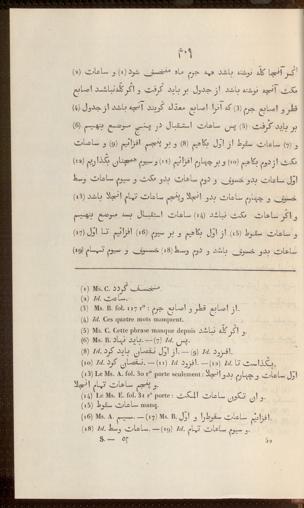 ۴۰۹
اگر آنجا کلّه نوشته باشد همه جرم ماه منخسف شود (1) و ساعات (2)
مکث آنچه نوشته باشد از جدول بر باید گرفت و اگر کلّه نباشد اصابع
قطر و اصابع جرم (3) که آنرا اصابع معدّله گویند آنچه باشد از جدول (4)
بر باید گرفت (5) پس ساعات استقبال در پنج موضع بنهیم (6)
و (7) ساعات سقوط از اول بکاهیم (8) و بر پنجم افزائیم (9) و ساعات
مکث از دوم بکاهیم (10) و بر چهارم افزائیم (11) و سیوم همچنان بگذاریم (12)
اول ساعات بدو خسوف و دوم ساعات بدو مکث و سیوم ساعات وسط
خسوف و چهارم ساعات بدو انجلا و پنجم ساعات تمام انجلا باشد (13)
و اگر ساعات مکث نباشد (14) ساعات استقبال بسه موضع بنهیم
و ساعات سقوط (15) از اول بکاهیم و بر سیوم (16) افزائیم تا اول (17)
ساعات بدو خسوف باشد و دوم وسط (18) خسوف و سیوم تمام (19)
(1) Ms. C. منخسف گردد.
(2) Id. ساعت.
(3) Ms. B. fol. 117 r° : از اصابع قطر و اصابع جرم.
(4) Id. Ces quatre mots manquent.
(5) Ms. C. Cette phrase manque depuis و اگر کلّه نباشد.
(6) Ms. B. باید نهاد. — (7) Id. پس.
(8) Id. از اول نقصان باید کرد. — (9) Id. افزود.
(10) Id. نقصان کرد. — (11) Id. افزود. — (12) Id. بگذاست تا.
(13) Le Ms. A. fol. 50 r° porte seulement : اول ساعات و چهارم بدو انجلا
و پنجم ساعات تمام انجلا.
(14) Le Ms. E. fol. 31 r° porte : و ان تکون ساعات المکث.
(15) ساعات سقوط manq.
(16) Ms. A. سیم. — (17) Ms. B. افزائیم ساعات سقوطرا و اول.
(18) Id. ساعات وسط. — (19) Id. و سیوم ساعات تمام.
S. — ۵۲ 52